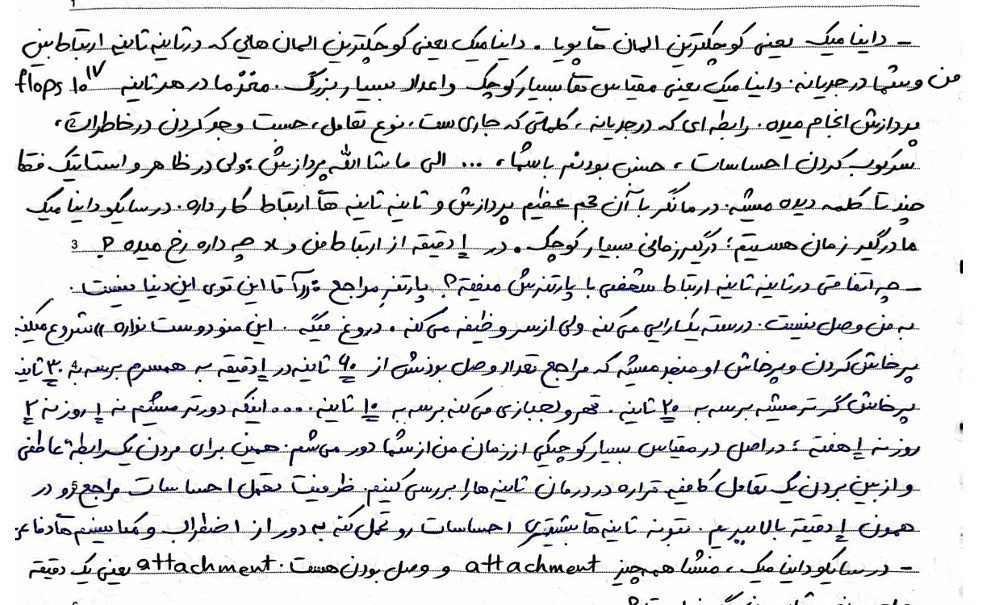 - داینامیک یعنی کوچکترین المان ها پویا. داینامیک یعنی کوچکترین المان هایی که در ثانیه ثانیه ارتباط بین
من و شما در جریانه. داینامیک یعنی مقیاس ها بسیار کوچک و اعداد بسیار بزرگ. مغز ما در هر ثانیه 10^17 flops
پردازش انجام میده. رابطه ای که در جریانه، کلماتی که جاری ست، نوع تعامل، جست و جو کردن در خاطرات،
سرکوب کردن احساسات، حسی بودنه با شما، ... الی ماشاالله پردازش ولی در ظاهر و استاتیک فقط
چند تا کلمه دیده میشه. درمانگر با آن حجم عظیم پردازش و ثانیه ثانیه ها ارتباط کار داره. در سایکوداینامیک
ما درگیر زمان هستیم؛ درگیر زمانی بسیار کوچک. در 1 دقیقه از ارتباط من و چه داره رخ میده؟
3
- چه اتفاقی در ثانیه ثانیه ارتباط شخصی با پارتنرش میفته؟ پارتنر مراجع آقا این توی این دنیا نیست.
به من وصل نیست. درسته یکارایی می کنه ولی از سر وظیفه می کنه. دروغ میگه. این منو دوست نداره. شروع میکنه
پرخاش کردن و پرخاش او منجر میشه که مراجع تعداد وصل بودنش از 60 ثانیه در 1 دقیقه به همسرم برسه به 30 ثانیه
پرخاش گر تر میشه برسه به 20 ثانیه. قهر و لجبازی می کنه برسه به 10 ثانیه .... اینکه دورتر میشیم نه 1 روز نه 2
روز نه 1 هفته؛ در اصل در مقیاس بسیار کوچیکی از زمان من از شما دور می شم. همین برای مردن یک رابطه عاطفی
و از بین بردن یک تعامل کافیه قراره در درمان ثانیه ها را بررسی کنیم. ظرفیت تحمل احساسات مراجع رو در
همون 1 دقیقه بالا ببریم. بتونه ثانیه ها بیشتری احساسات رو تحمل کنه به دور از اضطراب و مکانیسم ها دفاعی
- در سایکوداینامیک، منشا همه چیز attachment و وصل بودن هست. attachment یعنی یک دقیقه